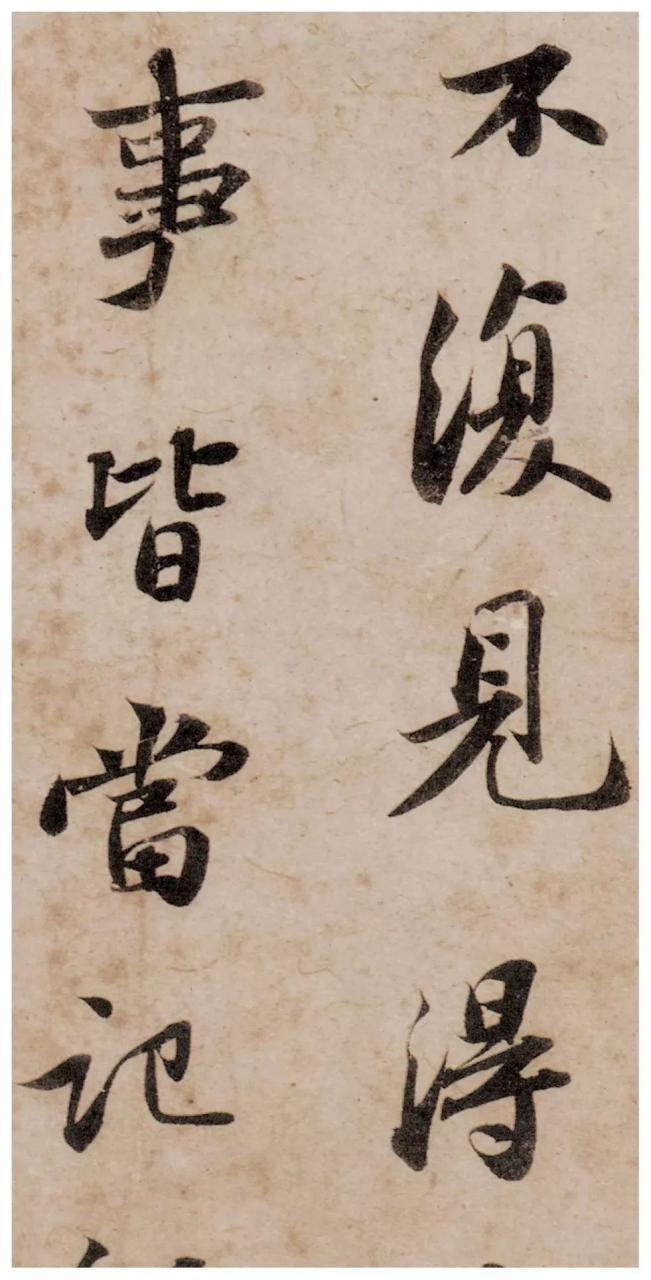 不須見得
事皆當記